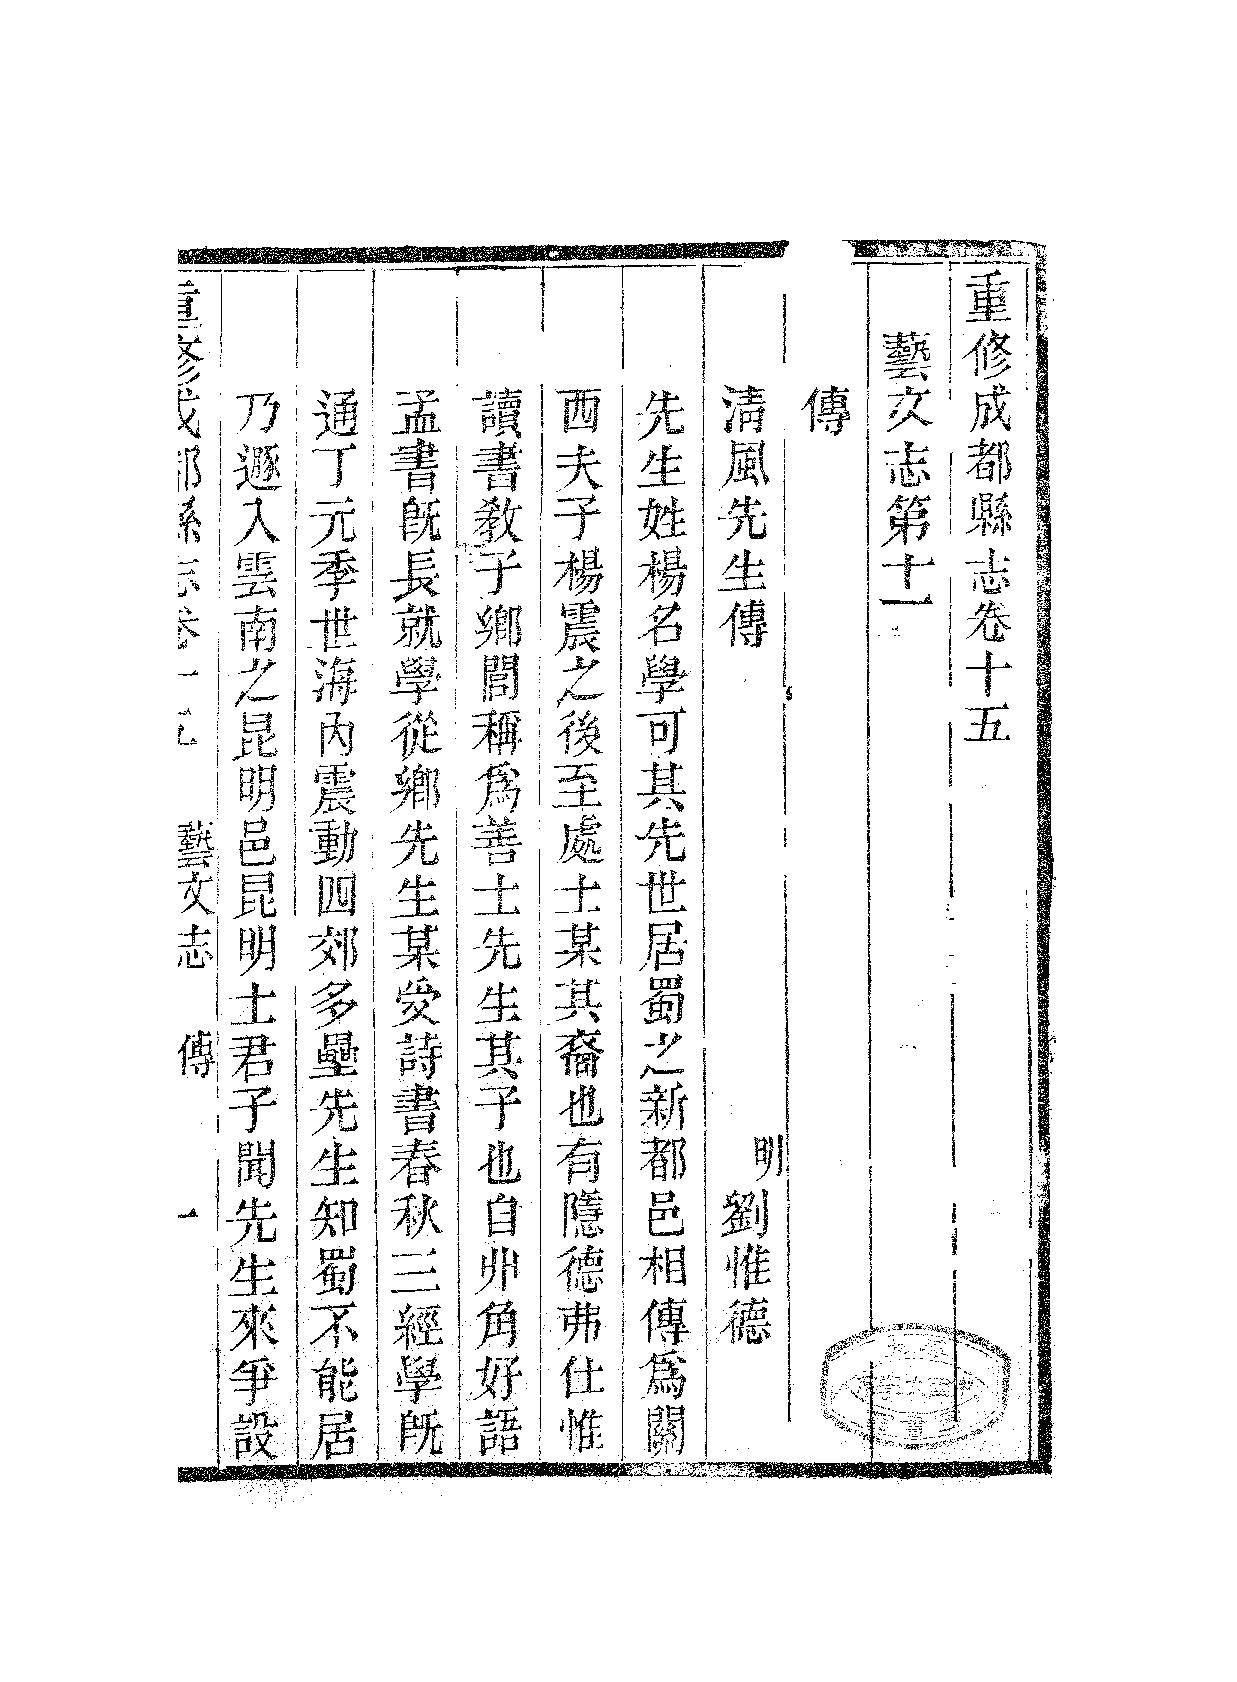 重修成都縣志卷十五
藝文志第十一
傳
清風先生傳 明 劉惟德
先生姓楊名學可其先世居蜀之新都邑相傳爲關
西夫子楊震之後至處士某其裔也有隱德弗仕惟
讀書敎子鄉閭稱爲善士先生其子也自丱角好語
孟書旣長就學從鄉先生某受詩書春秋三經學旣
通丁元季世海內震動四郊多壘先生知蜀不能居
乃遯入雲南之昆明邑昆明士君子聞先生來爭設
重修成都縣志卷十五 藝文志 傳 一